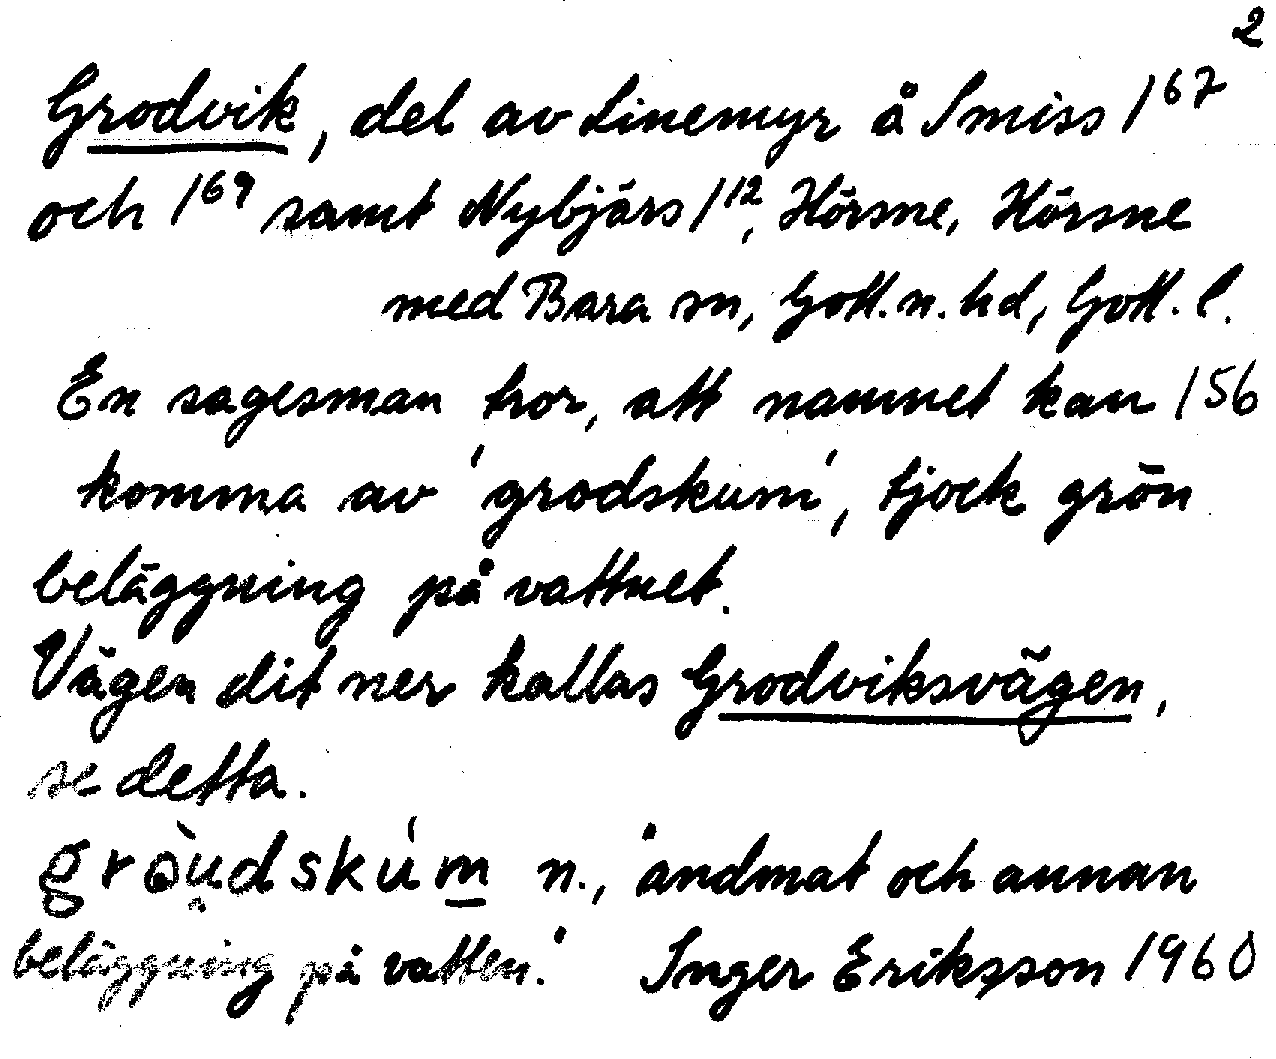 2
Grodvik, del av Linemyr å Smiss 1⁶⁷
och 1⁶⁹ samt Nybjärs 1¹², Hörsne, Hörsne
med Bara sn, Gotl. n. hd, Gotl. l.
En sagesman tror, att namnet kan 156
komma av 'grodskum', tjock grön
beläggning på vattnet.
Vägen dit ner kallas Grodviksvägen,
se detta.
gròu̯dskúm n., 'andmat och annan
beläggning på vatten.' Inger Eriksson 1960